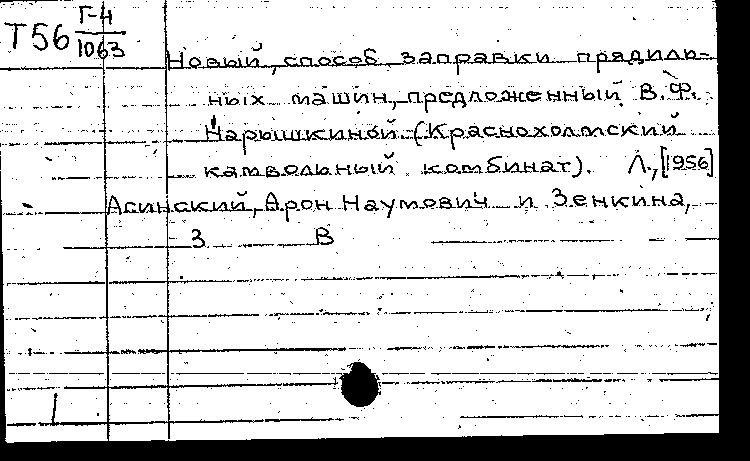 Т56 Г-4/1063
Новый способ заправки прядиль-
ных машин, предложенный В.Ф.
Нарышкиной. (Краснохолмский
камвольный комбинат). Л., [1956]
Асинский, Арон Наумович и Зенкина,
З В